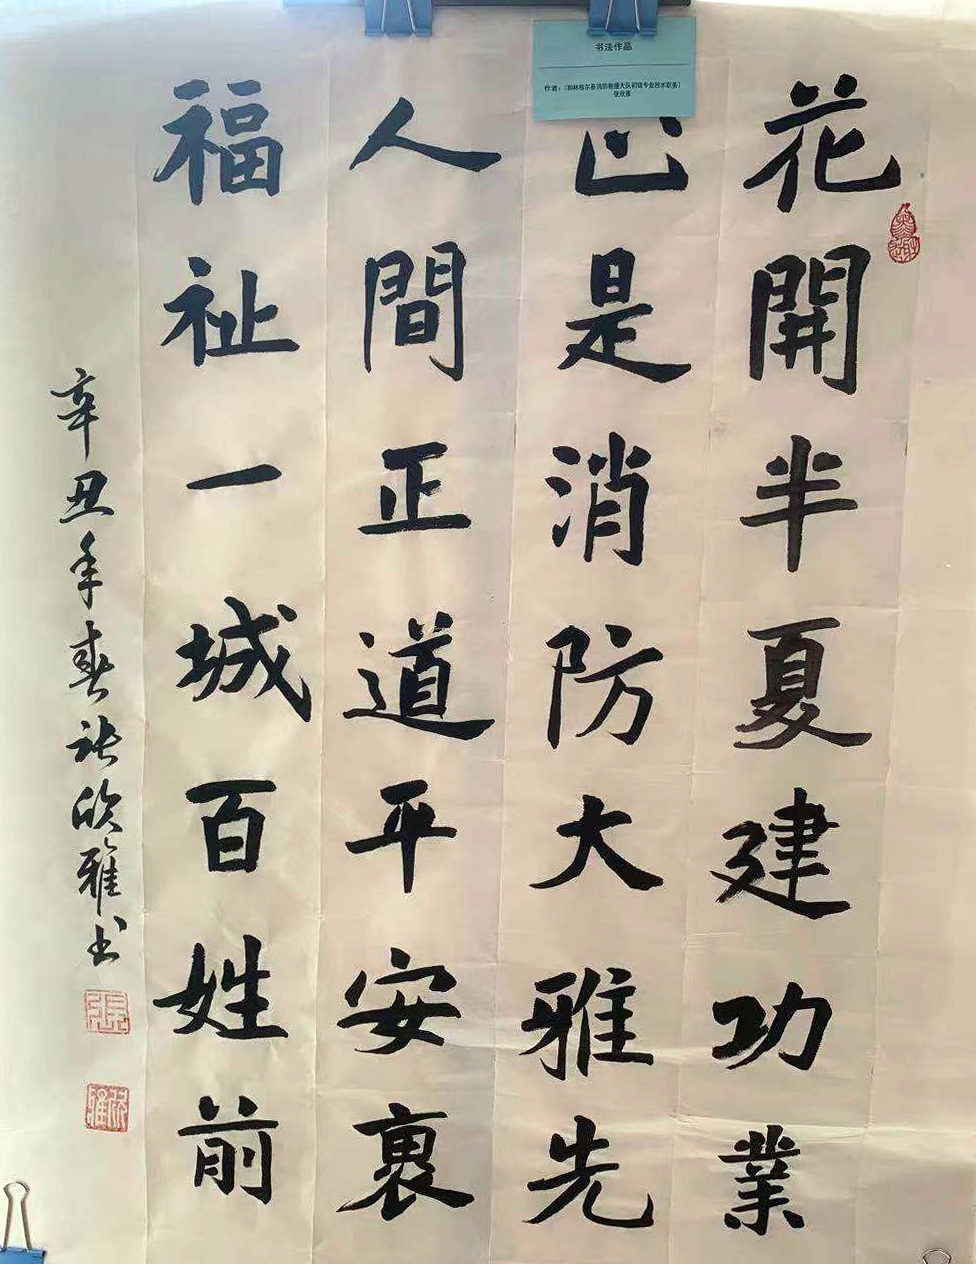 书法作品
作者：（和林格尔县消防救援大队初级专业技术职务）
张欣雅
花開半夏建功業
是消防大雅先
人間正道平安裏
福祉一城百姓前
辛丑年春張欣雅书
張
欣雅